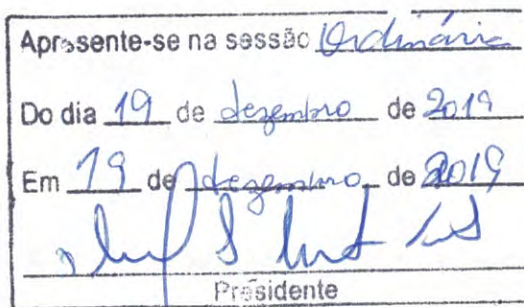 Apresente-se na sessão Ordinária
Do dia 19 de dezembro de 2019
Em 19 de dezembro de 2019
Presidente